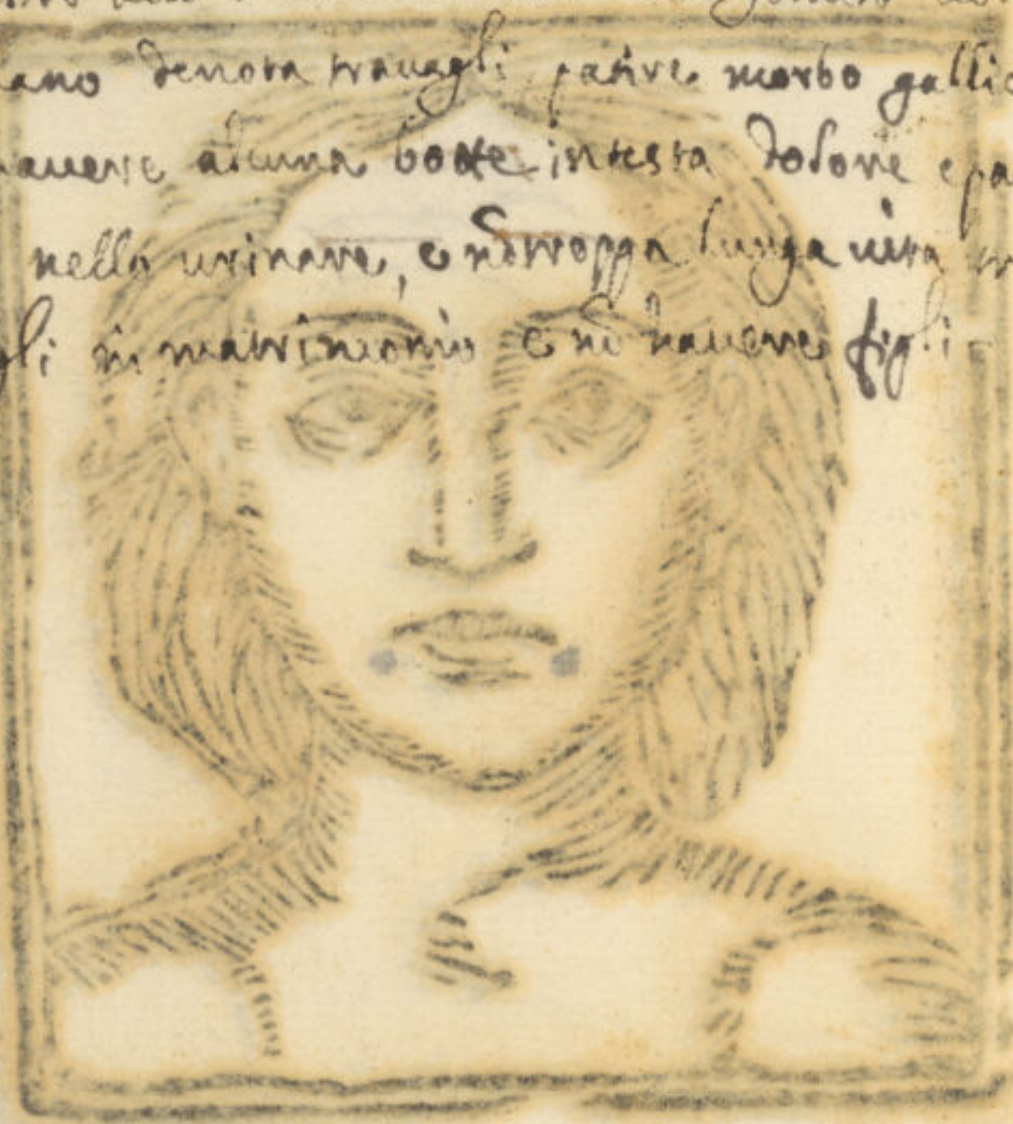 ano denota travagli patire morbo gallic
havere alcuna botte in testa dolore e pa
nello urinare, e nō troppa lunga vita tr
gli in matrimonio e nō havere figli